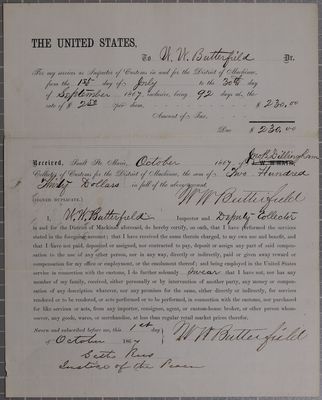 THE UNITED STATES,
To W. W. Butterfield Dr.
For my services as Inspector of Customs in and for the District of Mackinac,
from the 1st day of July to the 30th day
of September 1867, inclusive, being 92 days at the
rate of $ 2.50 per diem, $ 230.00
Amount of Tax,
Due $ 230.00
Received, Sault Ste. Marie, October 1867 of Jno. R. Dillingham
Collector of Customs for the District of Mackinac, the sum of Two Hundred
Thirty Dollars in full of the above account.
(SIGNED DUPLICATE.) W W Butterfield
I, W. W. Butterfield Inspector and Deputy Collector
in and for the District of Mackinac aforesaid, do hereby certify, on oath, that I have performed the services
stated in the foregoing account; that I have received the sum therein charged, to my own use and benefit, and
that I have not paid, deposited or assigned, nor contracted to pay, deposit or assign any part of said compen-
sation to the use of any other person, nor in any way, directly or indirectly, paid or given any reward or
compensation for my office or employment, or the emolument thereof; and being employed in the United States
service in connection with the customs, I do further solemnly swear that I have not, nor has any
member of my family, received, either personally or by intervention of another party, any money or compen-
sation of any description whatever, nor any promises for the same, either directly or indirectly, for services
rendered or to be rendered, or acts performed or to be performed, in connection with the customs, nor purchased
for like services or acts, from any importer, consignee, agent, or custom-house broker, or other person whom-
soever, any goods, wares, or merchandize, at less than regular retail market prices therefor.
Sworn and subscribed before me, this 1st day
of October 1867 W W Butterfield
Justice of the Peace